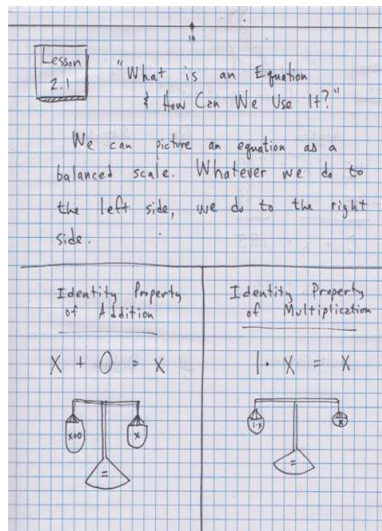 Lesson
2.1
"What is an Equation
& How Can We Use It?"
We can picture an equation as a
balanced scale. Whatever we do to
the left side, we do to the right
side.
Identity Property
of Addition
X + 0 = X
x+0
x
=
Identity Property
of Multiplication
1 · X = X
1·x
x
=